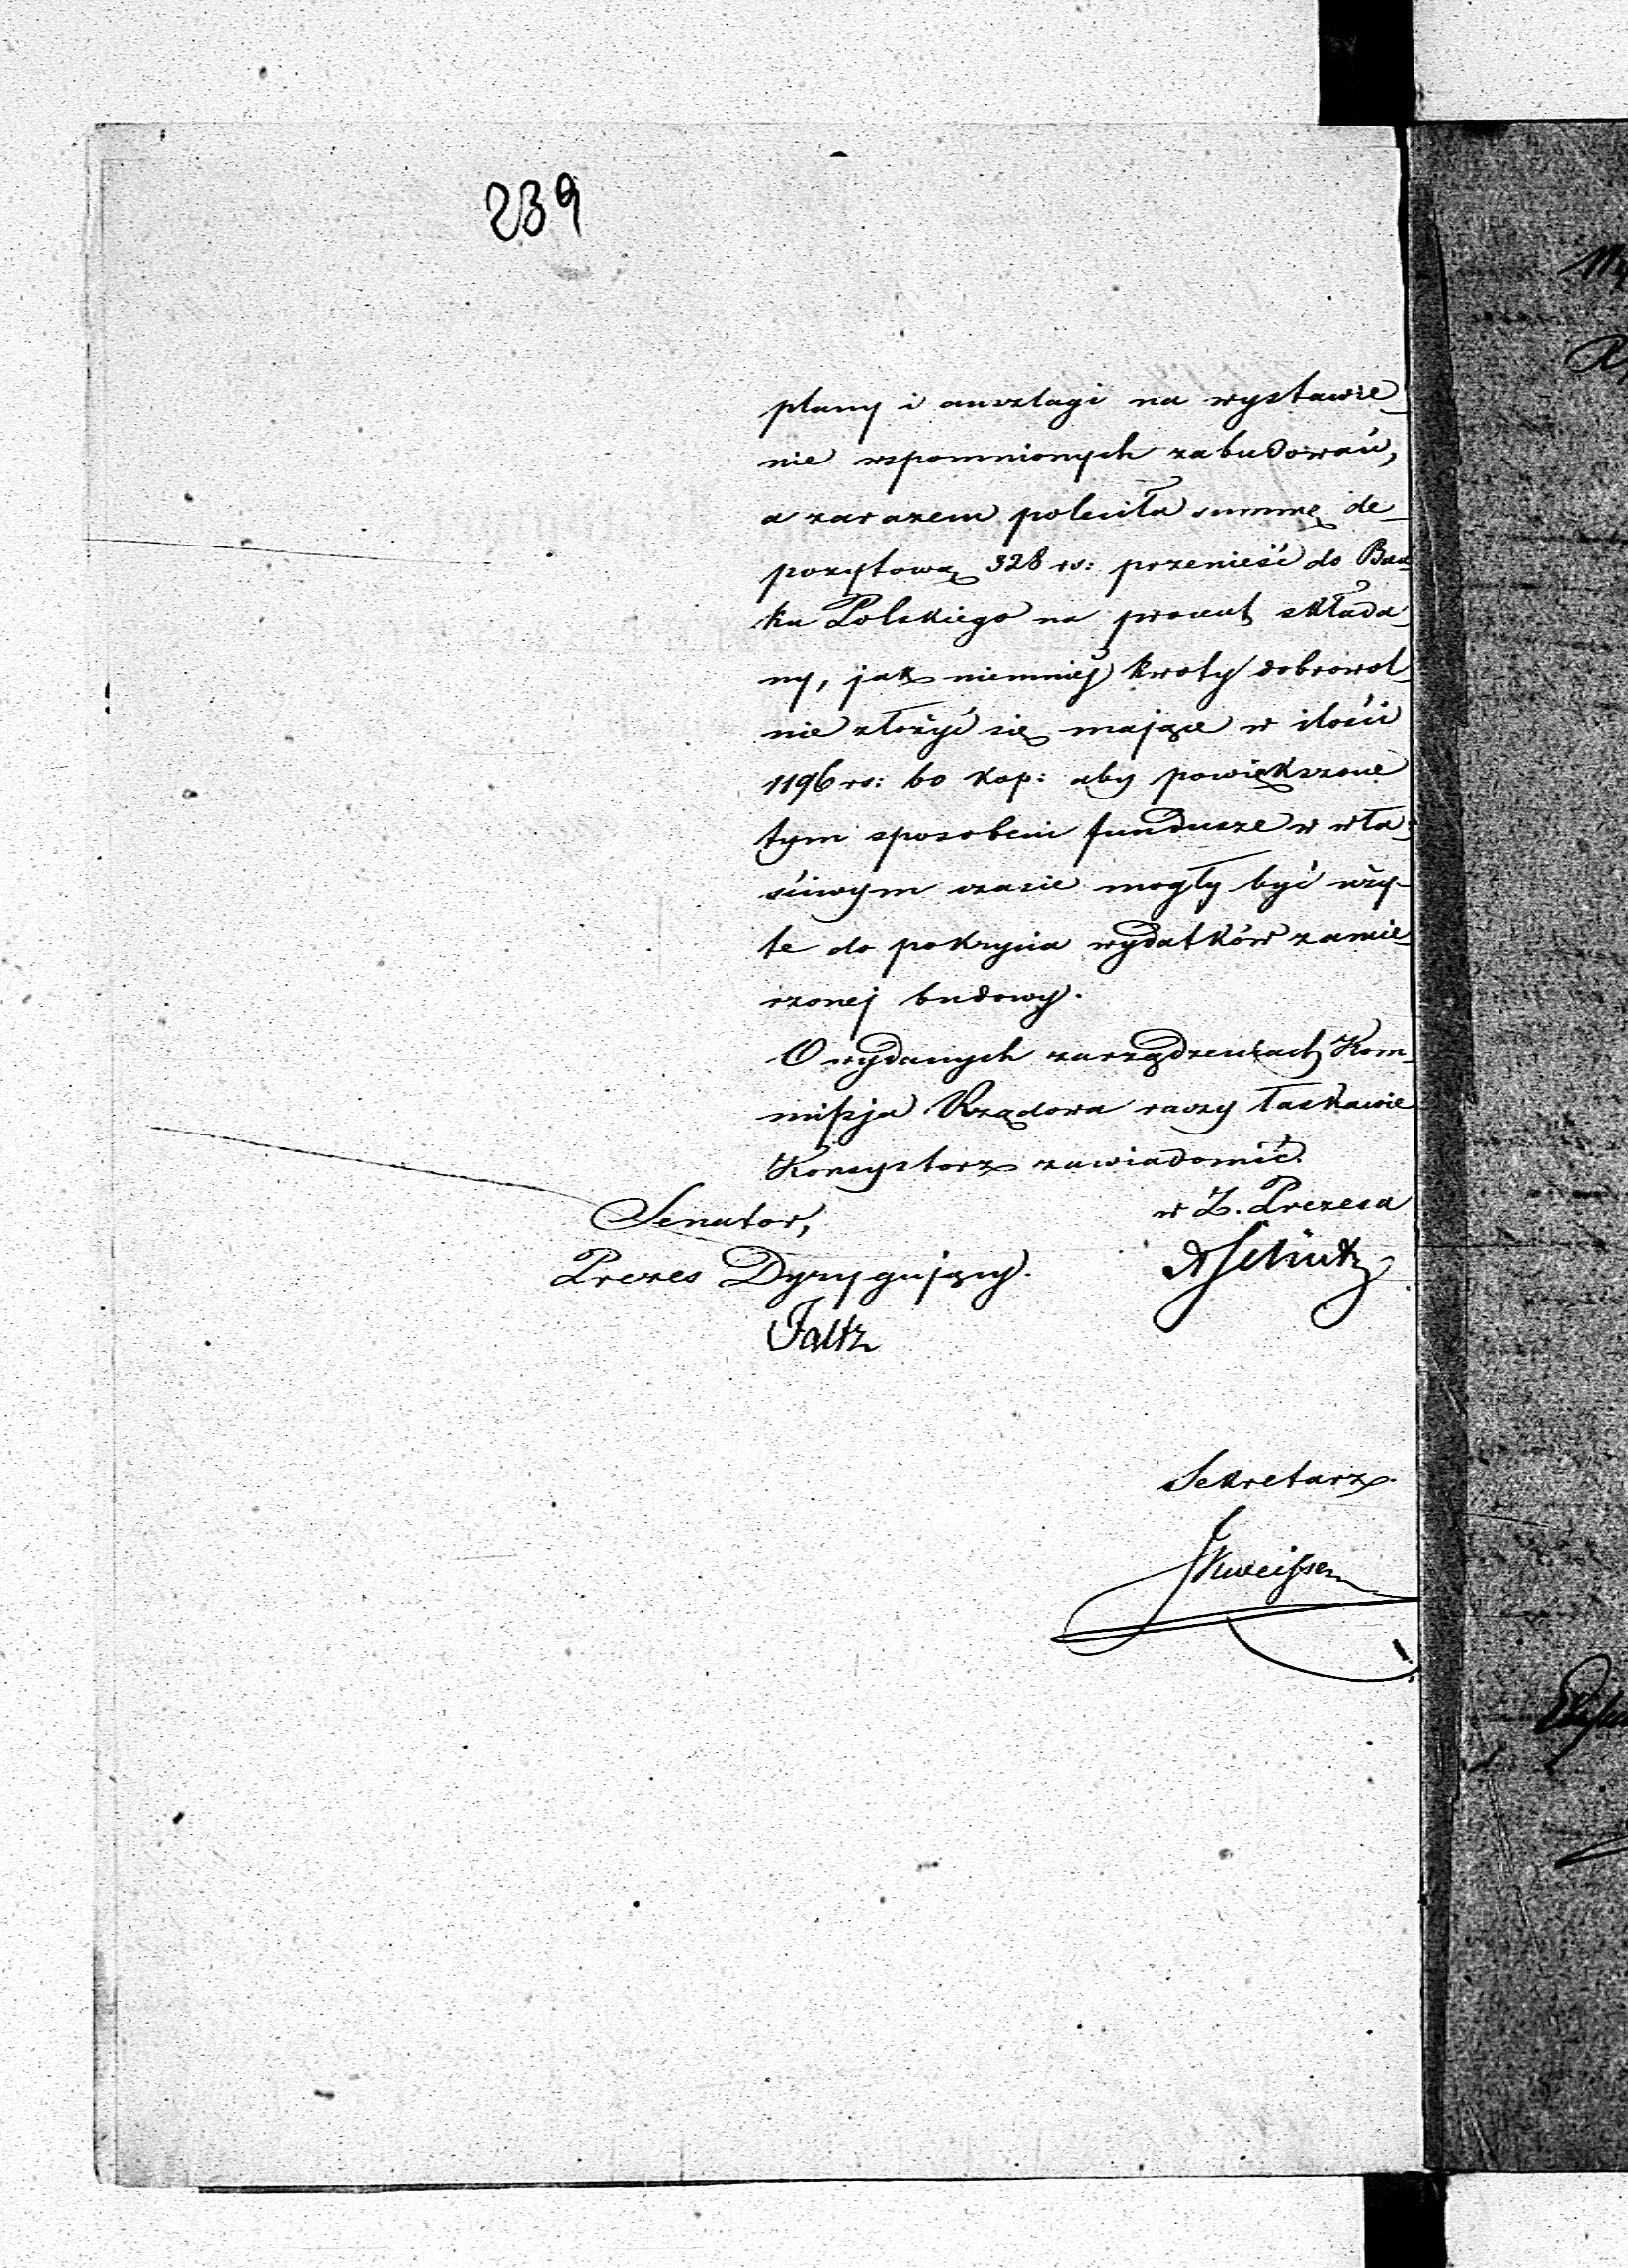 239
plany i anszlagi na wystawie_
nie wspomnionych zabudowań,
a zarazem poleciła summę de_
pozytową 328 rs: przenieść do Ban
ku Polskiego na procent składa_
ny, jak niemniej kwoty dobrowol_
nie złożyć się mające w ilości
1196 rs: 60 kop: aby powiększone
tym sposobem fundusze w wła_
ściwym czasie mogły być uży_
te do pokrycia wydatków zamie_
rzonej budowy.
O wydanych zarządzeniach Kom_
missja Rządowa raczy łaskawie
Konsystorz zawiadomić.
w Z. Prezesa
Senator,
Prezes Dyrygujący.
Sekretarz